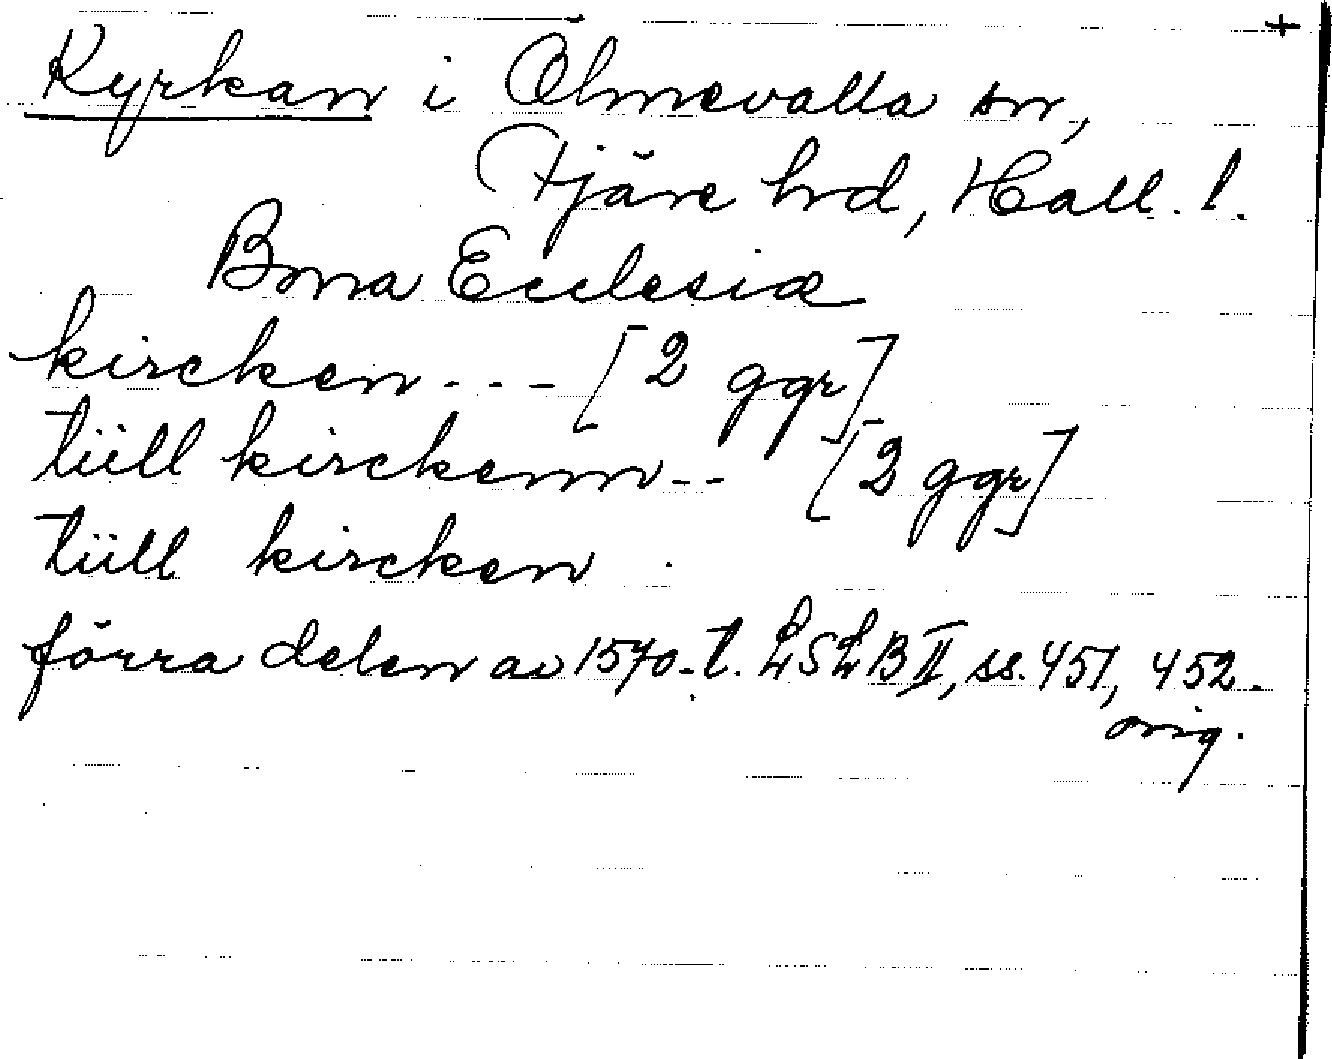 +
Kyrkan i Ölmevalla sn,
Fjäre hrd, Hall. l.
Bona Ecclesiæ
kircken --- [2 ggr]
tüll kirckenn -- [2 ggr]
tüll kircken
förra delen av 1570-t. LSLB II, ss. 451, 452.
orig.